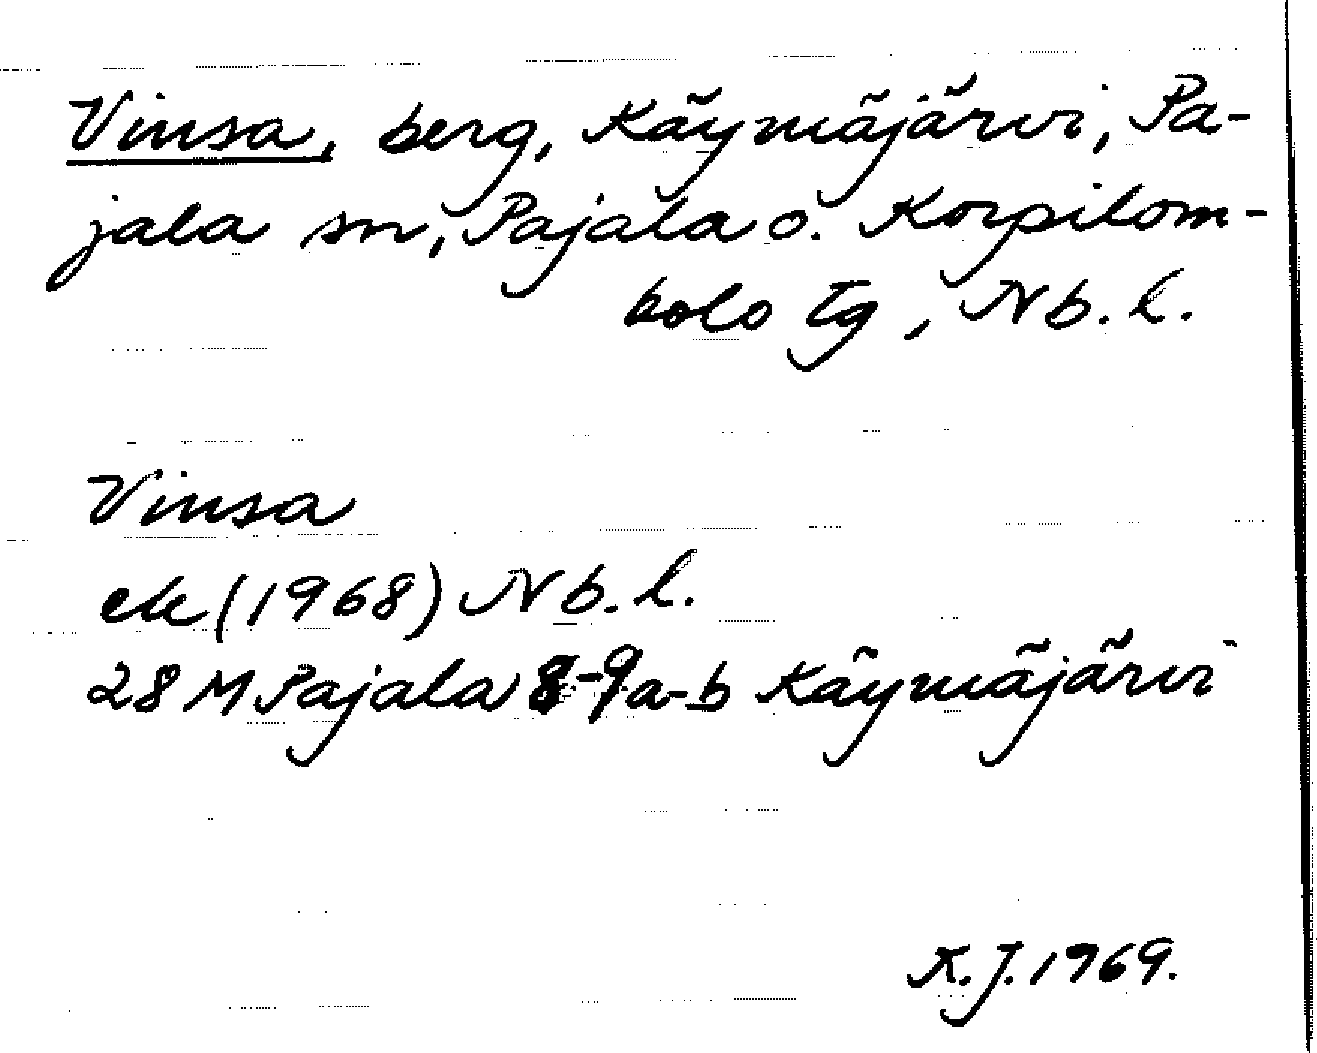 Vinsa, berg, Käymäjärvi, Pa-
jala sn, Pajala o. Korpilom-
bolo tg, Nb. l.
Vinsa
ek (1968) Nb. l.
28 M Pajala 8-9a-b Käymäjärvi
K. J. 1969.